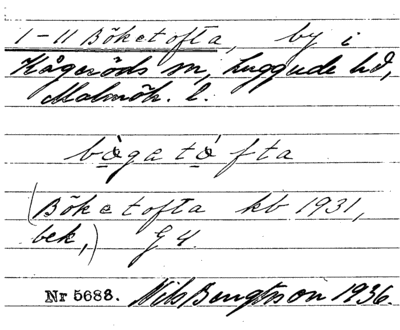 1-11 Böketofta, by i
Kågeröds sn, Luggude hd,
Malmöh. l.
bògetófta
(Böketofta kb 1931,
bek,) G 4.
Nr 5688. Nils Bengtsson 1936.